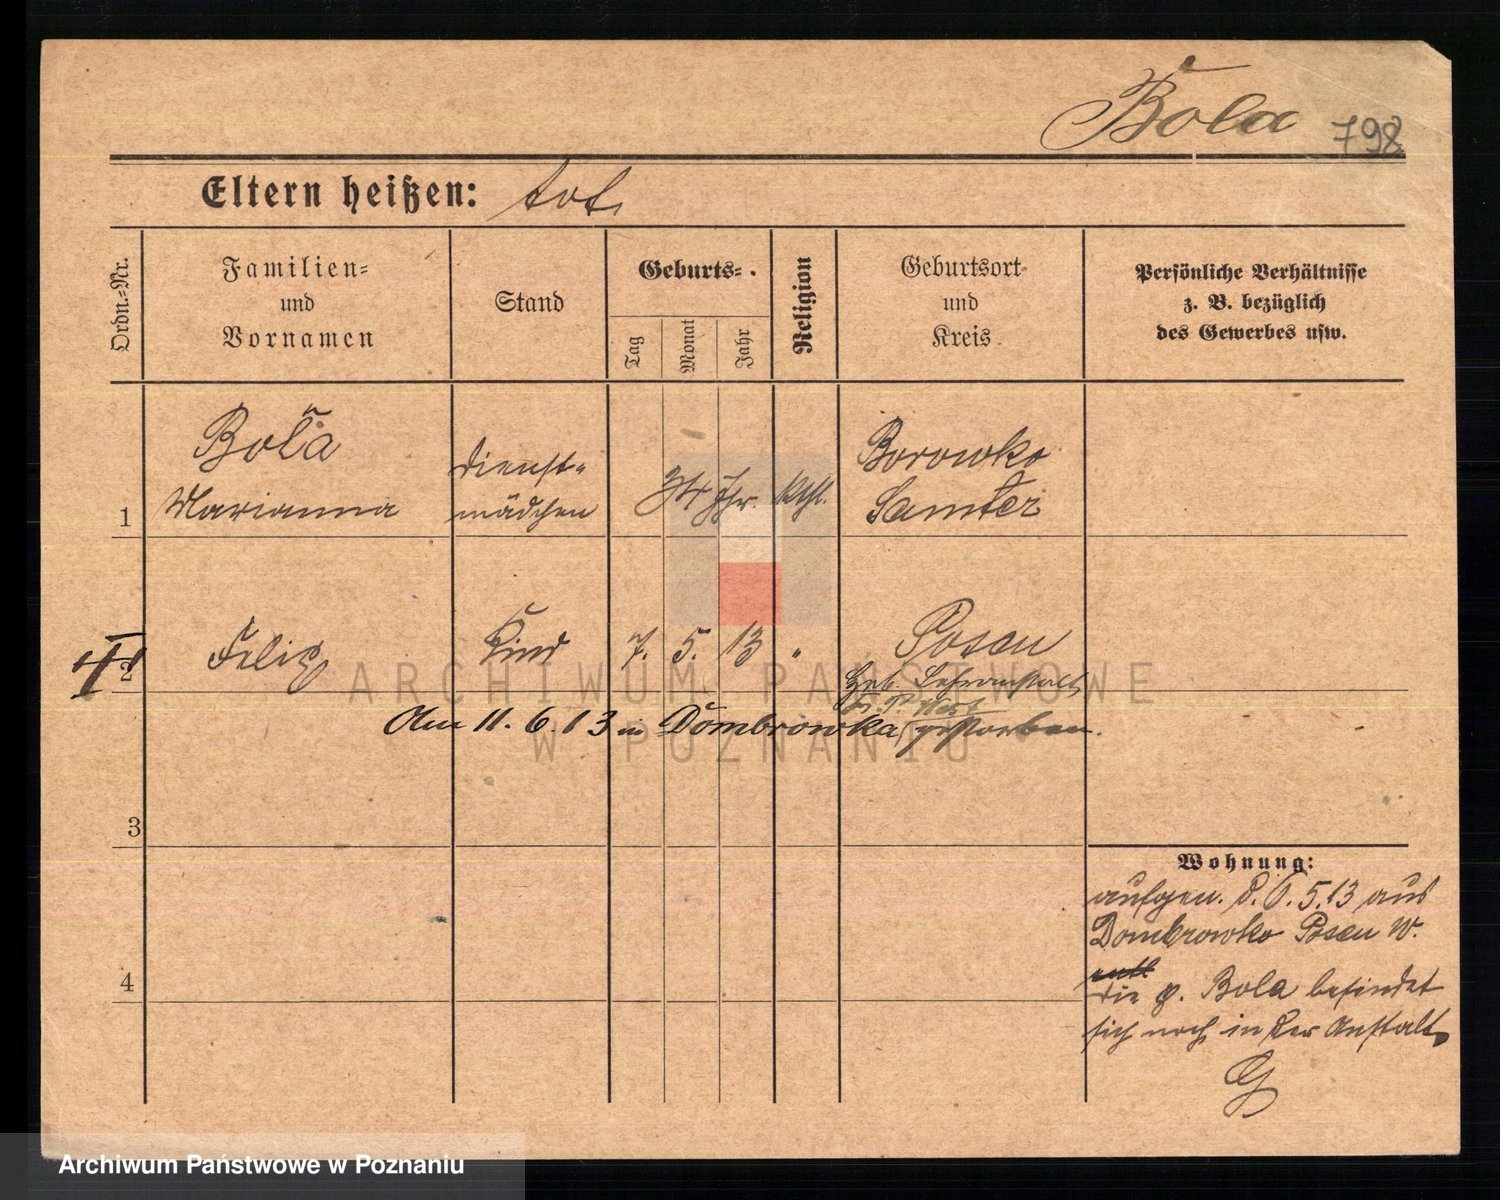 Bola 798
Eltern heißen: tot
Ordn.-Nr.
Familien-
und
Vornamen
Stand
Geburts-
Tag
Monat
Jahr
Religion
Geburtsort
und
Kreis
Persönliche Verhältnisse
z. B. bezüglich
des Gewerbes usw.
1
Bola
Marianna
Dienst-
mädchen
34 Jhr.
kth.
Borowko
Samter
2
Felix
Kind
7. 5. 13
"
Posen
Geb. Lehranstalt
Am 11. 6. 13 in Dombrowka gestorben.
3
4
Wohnung:
aufgen. d. 6. 5. 13 aus
Dombrowko Posen W.
die g. Bola befindet
sich noch in der Anstalt
G
ARCHIWUM PAŃSTWOWE
W POZNANIU
Archiwum Państwowe w Poznaniu